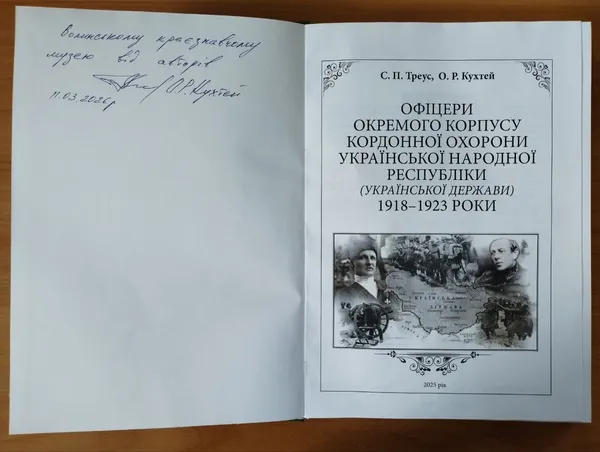 Волинському краєзнавчому
музею від авторів
О.Р. Кухтей
11.03.2026р
С. П. Треус, О. Р. Кухтей
ОФІЦЕРИ
ОКРЕМОГО КОРПУСУ
КОРДОННОЇ ОХОРОНИ
УКРАЇНСЬКОЇ НАРОДНОЇ
РЕСПУБЛІКИ
(УКРАЇНСЬКОЇ ДЕРЖАВИ)
1918–1923 РОКИ
УКРАЇНСЬКА
ДЕРЖАВА
2025 рік